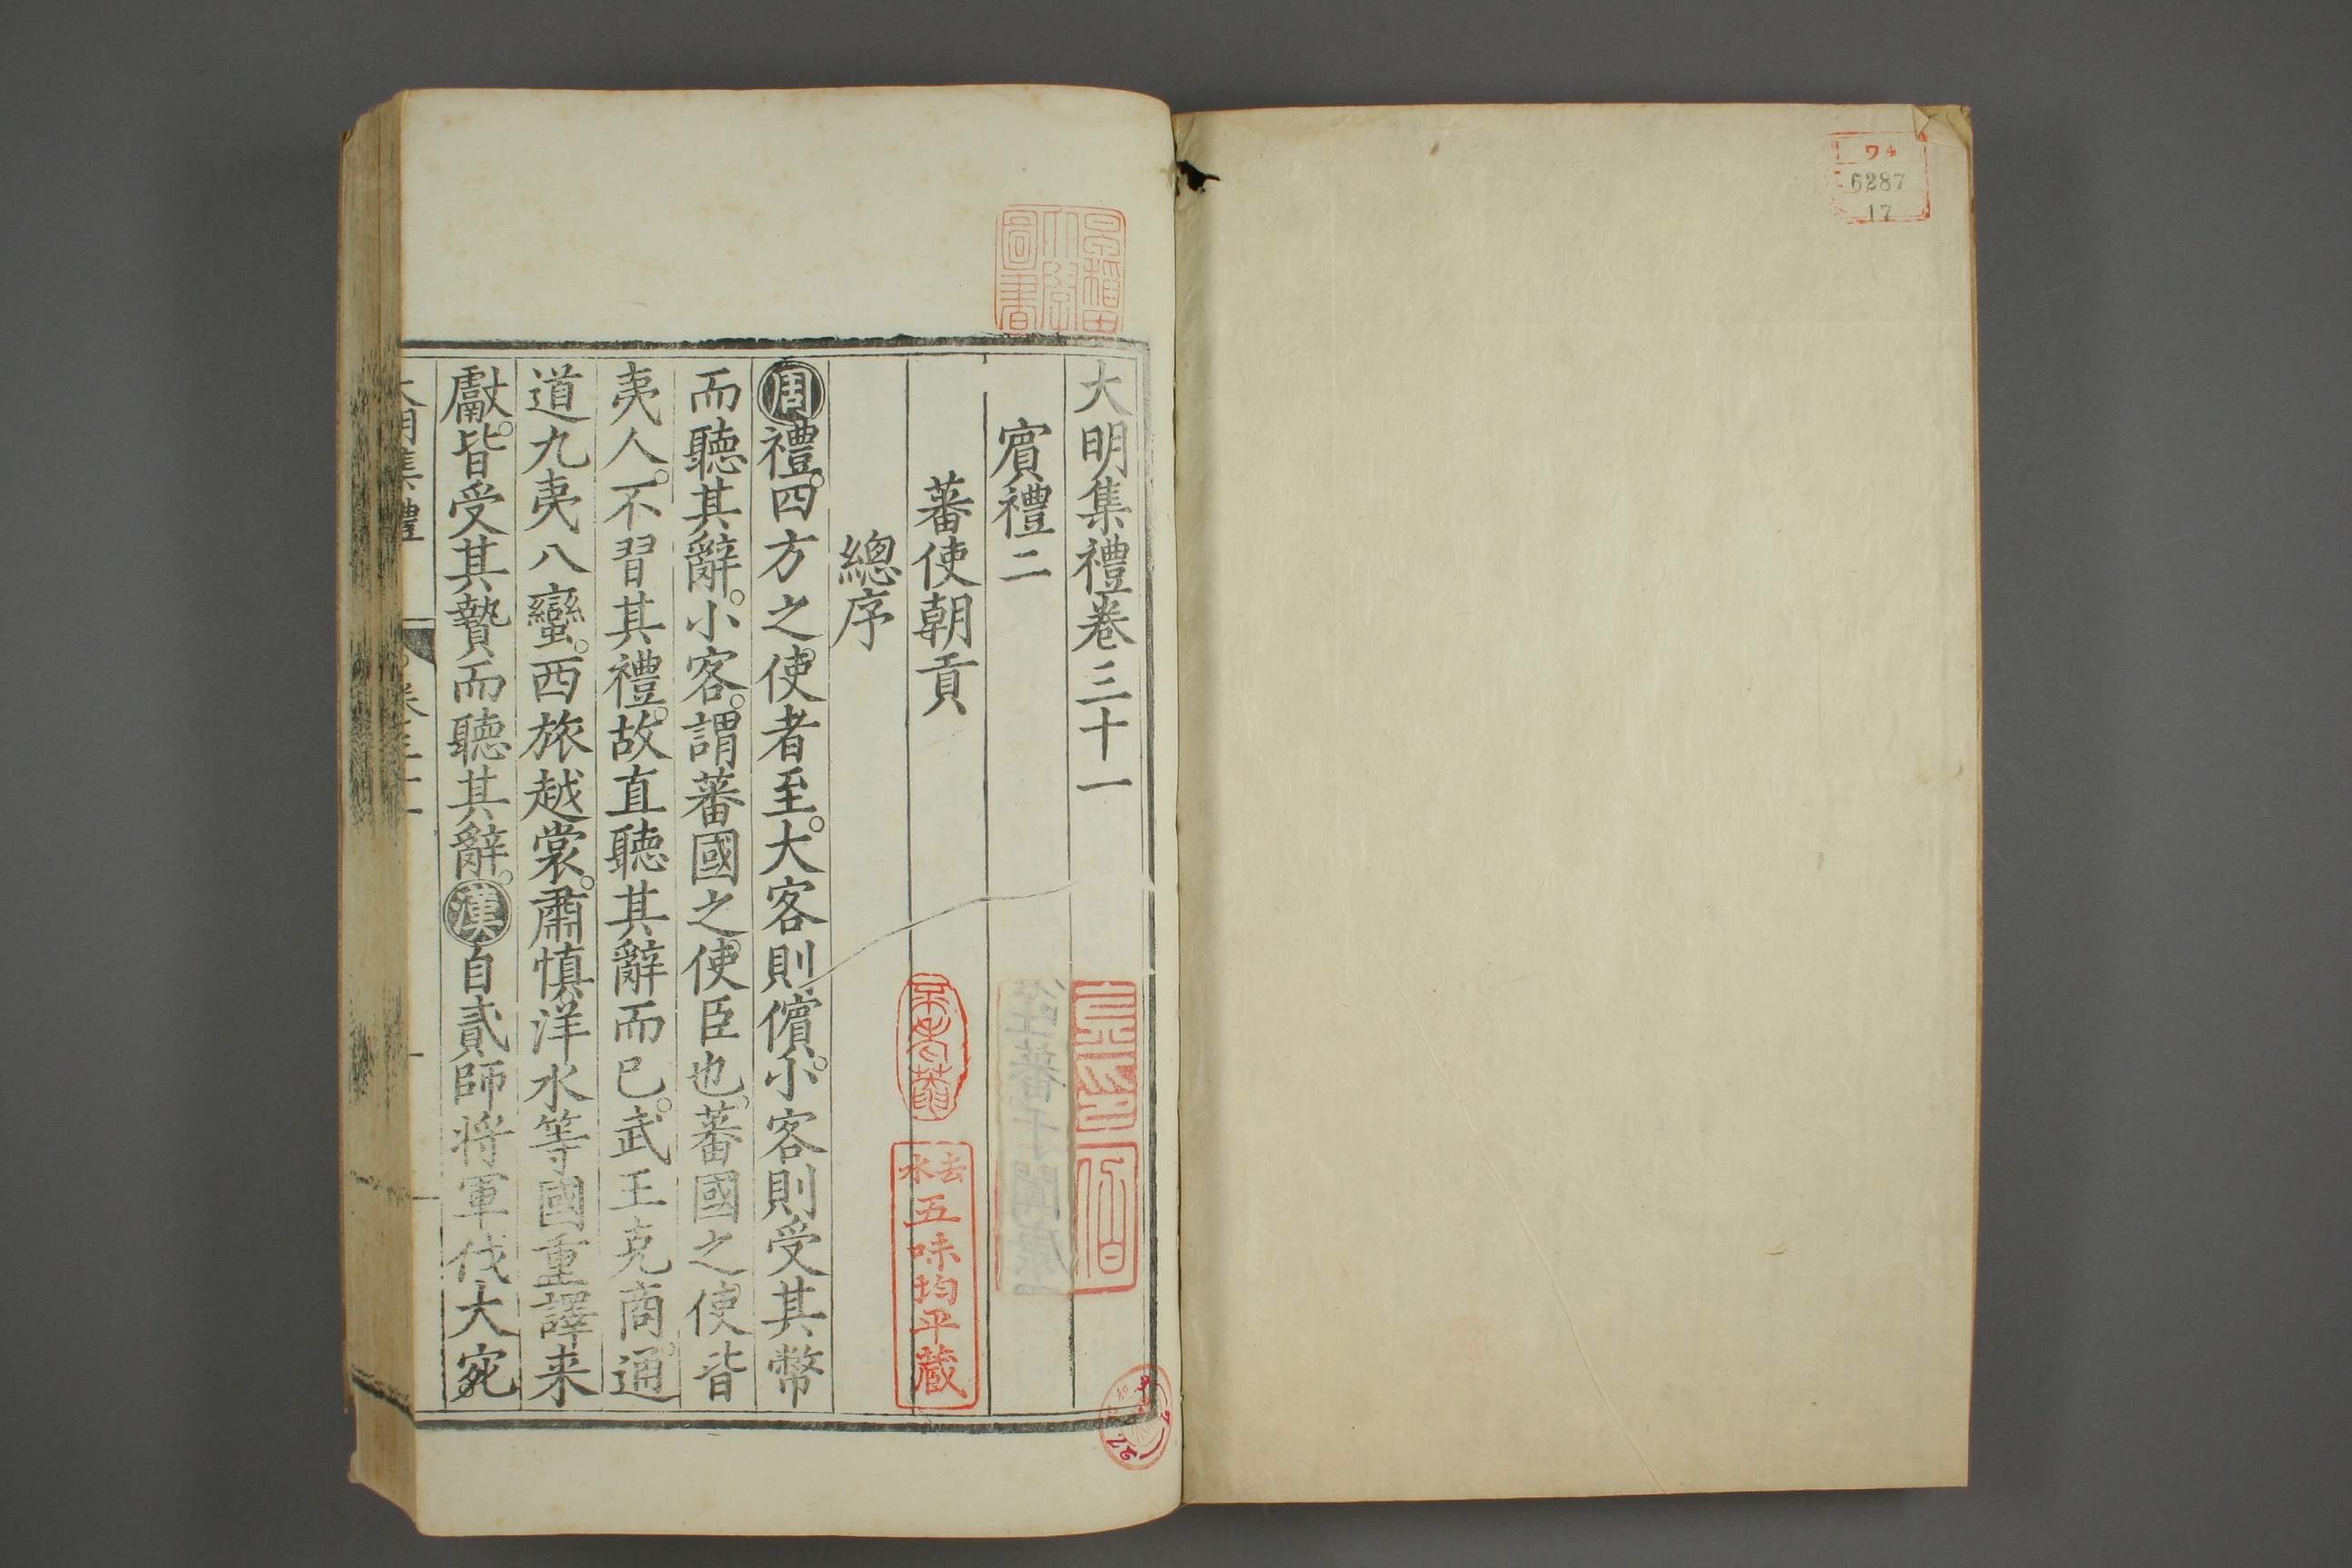 ワ4
6287
17
早稲田大學圖書
大明集禮卷三十一
賓禮二
蕃使朝貢
總序
周禮。四方之使者至。大客則儐。小客則受其幣
而聽其辭。小客。謂蕃國之使臣也。蕃國之使皆
夷人。不習其禮。故直聽其辭而已。武王克商。通
道九夷八蠻。西旅越裳。肅慎洋水等國重譯来
獻。皆受其贄而聽其辭。漢自貳師將軍伐大宛
大明集禮
卷三十一
去水
五味均平蔵